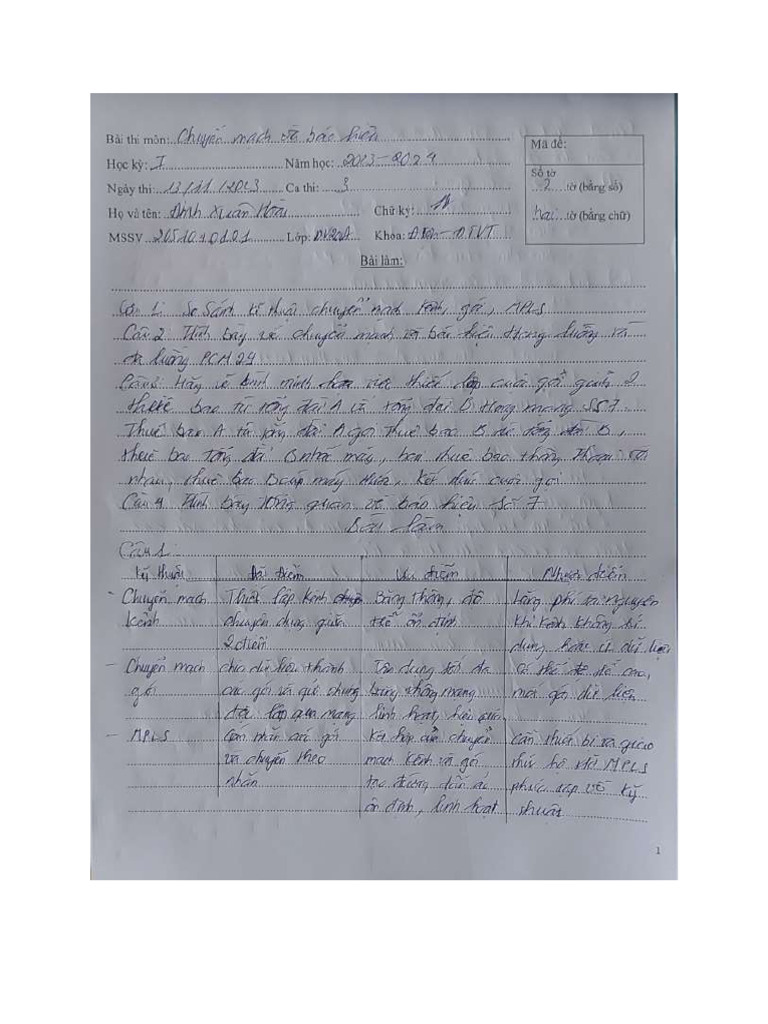 Bài thi môn: Chuyển mạch và báo hiệu
Học kỳ: I Năm học: 2023-2024
Ngày thi: 13/11/2023 Ca thi: 3
Họ và tên: Xuân Chữ ký:
MSSV 2051040121 Lớp: Khóa: Điện-ĐTVT
Mã đề:
Số tờ
2 tờ (bằng số)
hai tờ (bằng chữ)
Bài làm:
Câu 1: So sánh kĩ thuật chuyển mạch kênh, gói, MPLS
Câu 2: Trình bày về chuyển mạch và báo hiệu trong đường và
đa đường PCM 24
Câu 3: Hãy vẽ hình minh họa việc thiết lập cuộc gọi giữa 2
thuê bao từ tổng đài A và tổng đài B trong mạng SS7
Thuê bao A từ tổng đài A gọi thuê bao B từ tổng đài B,
thuê bao tổng đài B nhấc máy, hai thuê bao thông thoại với
nhau, thuê bao B cúp máy trước, kết thúc cuộc gọi
Câu 4 Trình bày tổng quan về báo hiệu số 7
Bài làm
Câu 1:
Kỹ thuật Đặc điểm Ưu điểm Nhược điểm
- Chuyển mạch Thiết lập kênh Băng thông, độ Lãng phí tài nguyên
kênh chuyên dụng giữa trễ ổn định khi kênh không sử
2 điểm dụng hoặc ít dữ liệu
- Chuyển mạch chia dữ liệu thành Tận dụng tối đa Có thể độ trễ cao,
gói các gói và gửi chúng băng thông mạng mất gói dữ liệu
độc lập qua mạng linh hoạt, hiệu quả
- MPLS Gán nhãn các gói Kết hợp của chuyển cần thiết bị và giao
và chuyển theo mạch kênh và gói thức hỗ trợ MPLS
nhãn tạo đường dẫn ảo phức tạp về kỹ
ổn định, linh hoạt thuật
1